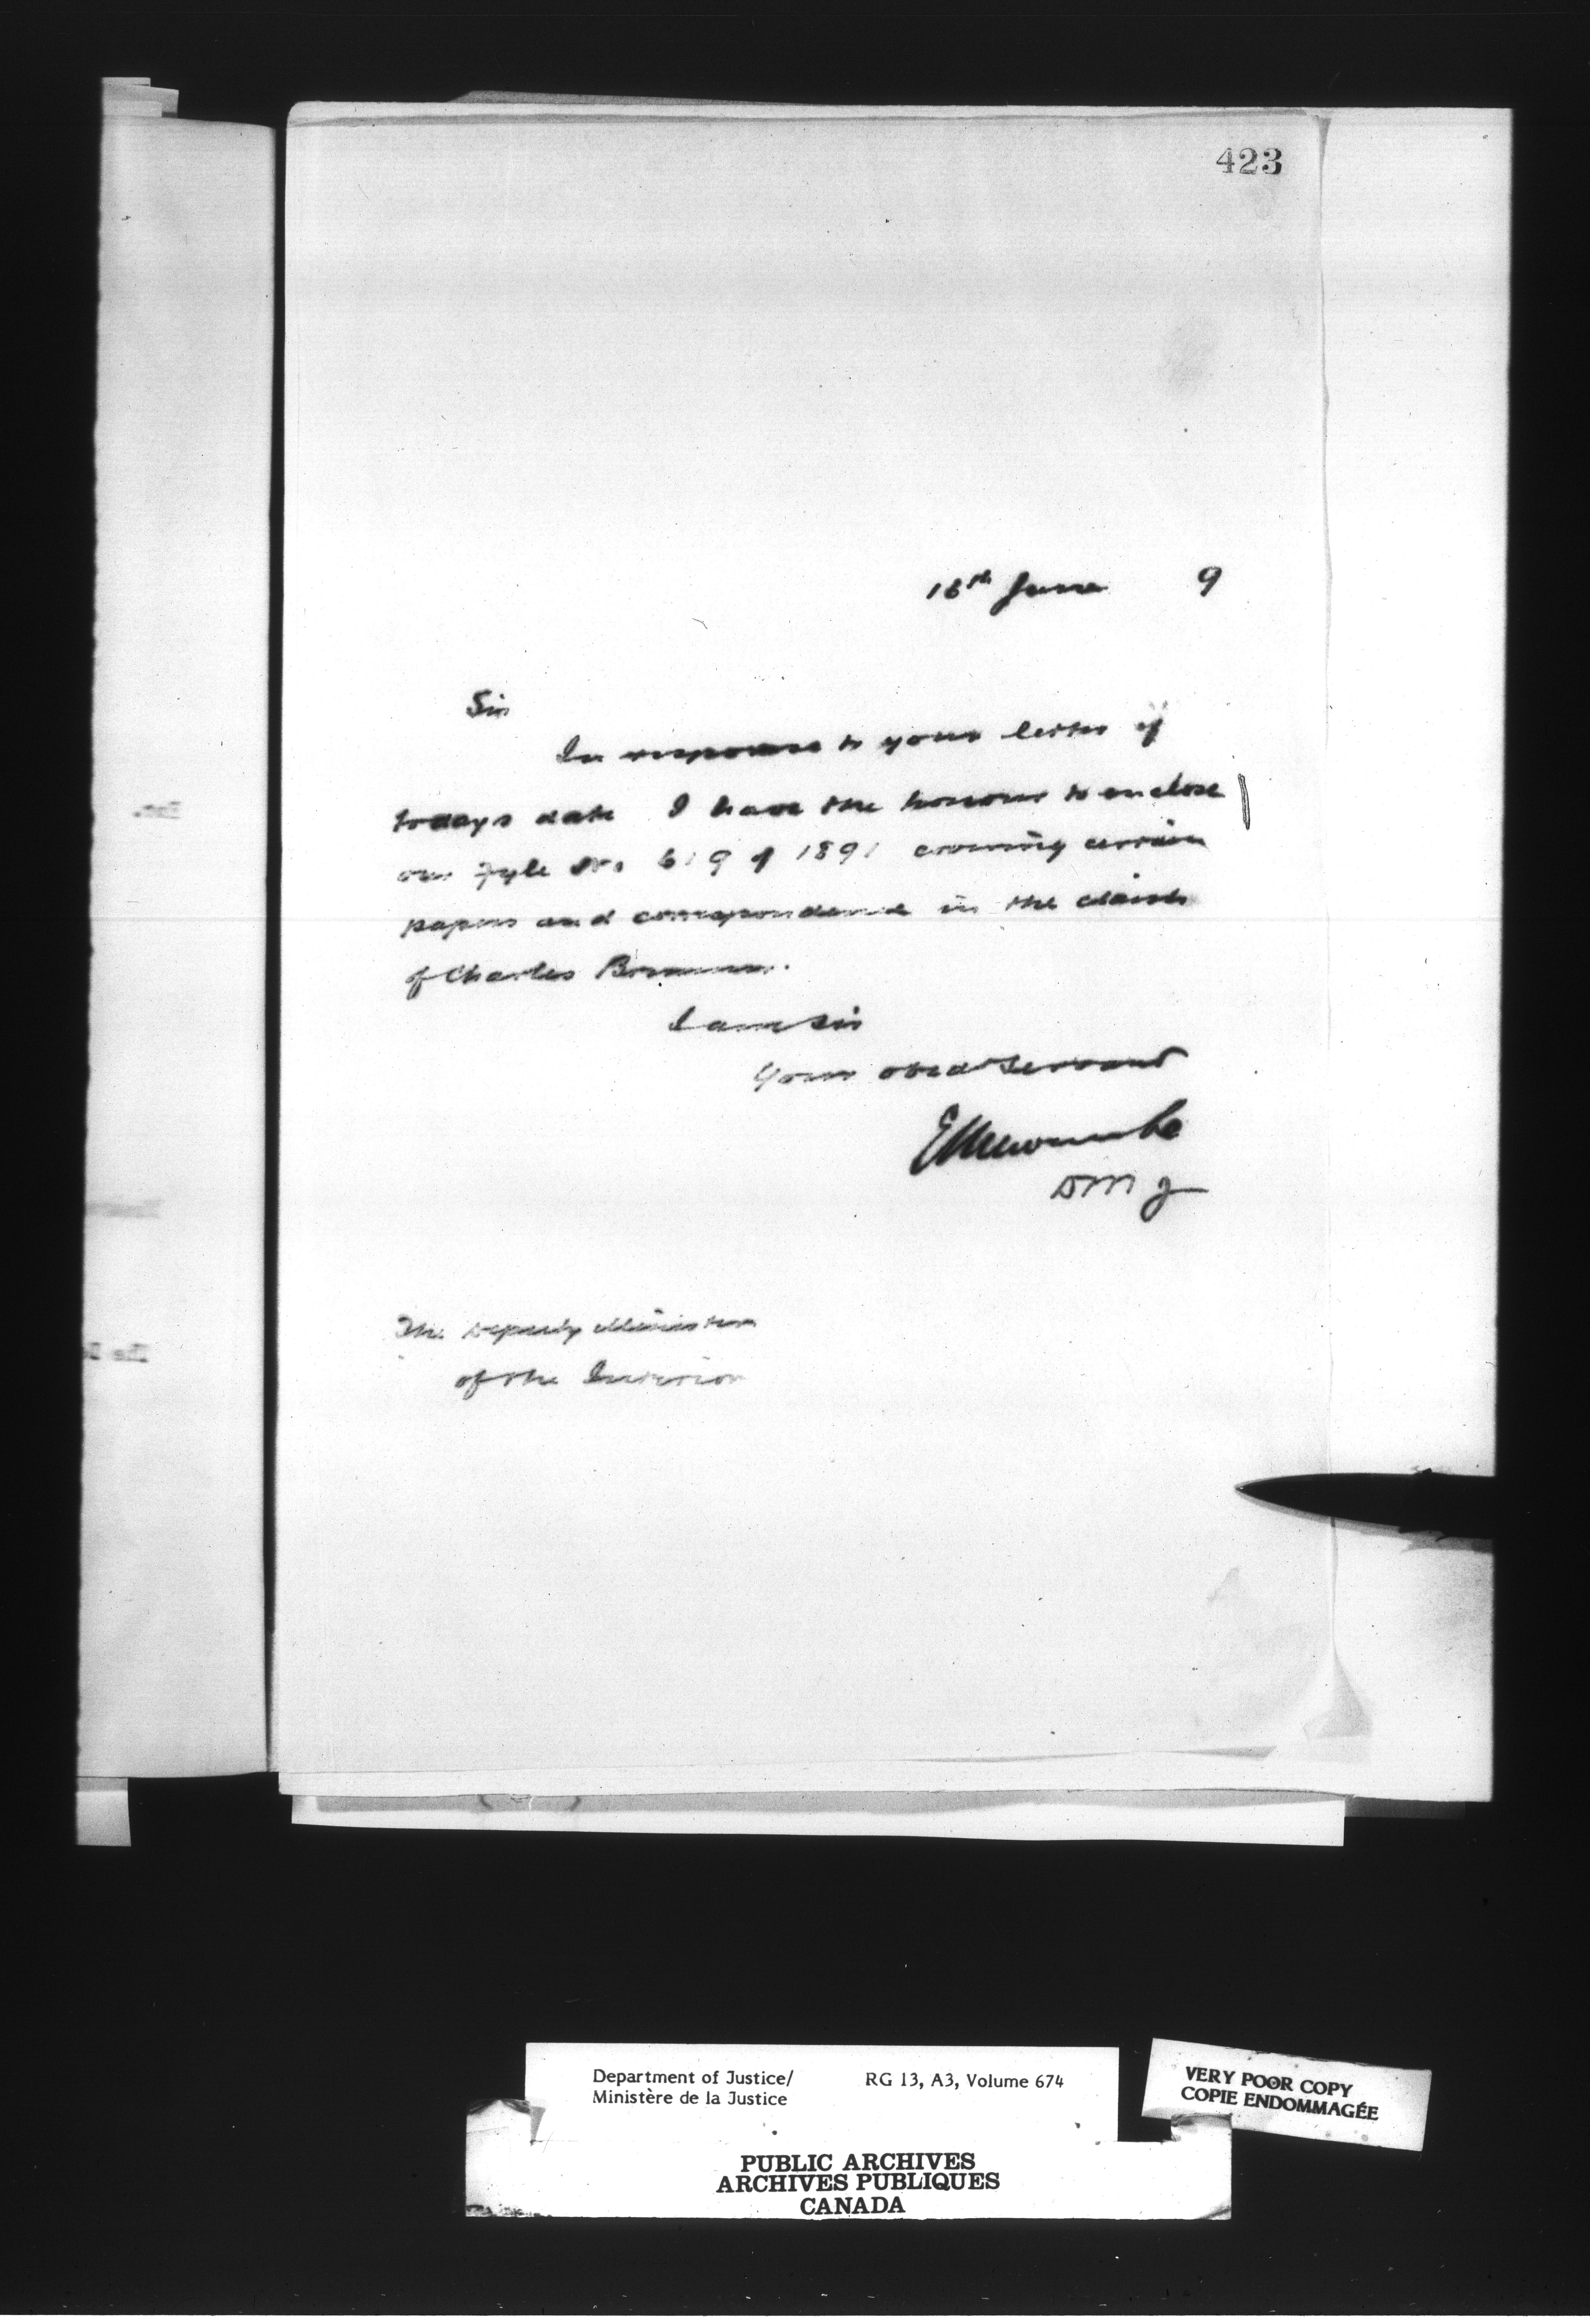 423
16th June 9
Sir
In response to your letter of
todays date I have the honour to enclose
our Fyle No. 619 of 1891 covering certain
papers and correspondence in the claims
of Charles
I am Sir
Your obed Servant
E Newcombe
DMJ
The Deputy Minister
of the Interior
Department of Justice/
Ministère de la Justice
RG 13, A3, Volume 674
VERY POOR COPY
COPIE ENDOMMAGÉE
PUBLIC ARCHIVES
ARCHIVES PUBLIQUES
CANADA